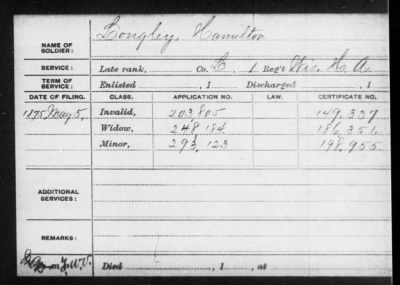 NAME OF SOLDIER: Longley, Hamilton
SERVICE: Late rank, Co. E, 1 Reg't Wis. H. A.
TERM OF SERVICE: Enlisted , 1 Discharged , 1
DATE OF FILING. CLASS. APPLICATION NO. LAW. CERTIFICATE NO.
1875 May 5, Invalid, 203,805 149,337
Widow, 248,184 186,351
Minor, 293,123 198,955
ADDITIONAL SERVICES:
REMARKS:
Died , 1 , at